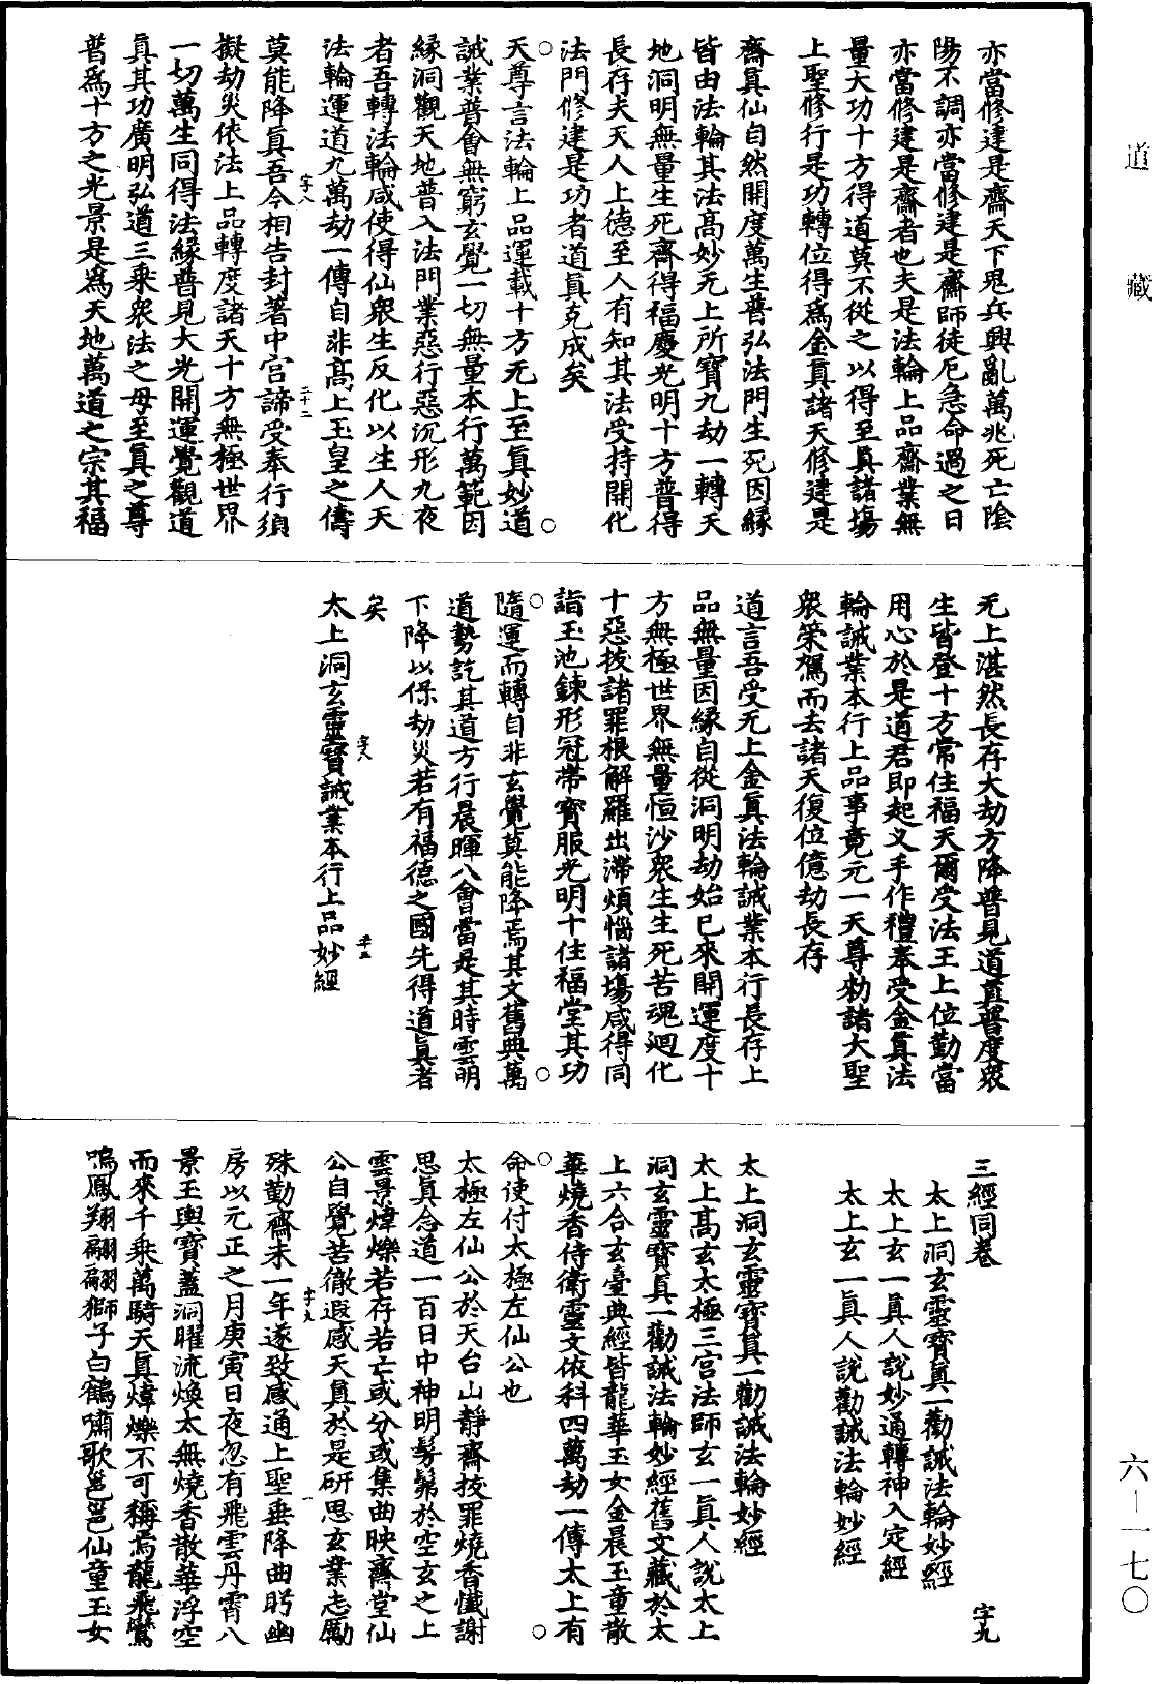 道藏
六—一七〇
亦當修建是齋天下兵興亂萬兆死亡陰
陽不調亦當修建是齋師徒厄急命過之日
亦當修建是齋者也夫是法輪上品齋業無
量大功十方得道莫不從之以得至真諸塲
上聖修行是功轉位得爲金真諸天修建是
齋真仙自然開度萬生普弘法門生死因緣
皆由法輪其法高妙无上所寶九劫一轉天
地洞明無量生死齊得福慶光明十方普得
長存夫天人上德至人有知其法受持開化
法門修建是功者道真克成矣
天尊言法輪上品運載十方无上至真妙道
誡業普會無窮玄覺一切無量本行萬範因
緣洞觀天地普入法門業惡行惡沉形九夜
者吾轉法輪咸使得仙衆生反化以生人天
法輪運道九萬劫一傳自非高上玉皇之儔
字八
二十二
莫能降真吾今相告封著中宮諦受奉行須
擬劫災依法上品轉度諸天十方無極世界
一切萬生同得法緣普見大光開運覺觀道
真其功廣明弘道三乘衆法之母至真之尊
普爲十方之光景是爲天地萬道之宗其福
无上湛然長存大劫方降普見道真普度衆
生皆登十方常住福天爾受法王上位勤當
用心於是道君即起义手作禮奉受金真法
輪誡業本行上品事竟元一天尊勑諸大聖
衆策駕而去諸天復位億劫長存
道言吾受无上金真法輪誡業本行長存上
品無量因緣自從洞明劫始已來開運度十
方無極世界無量恒沙衆生生死苦魂迴化
十惡拔諸罪根解羅出滯煩惱諸塲咸得同
詣玉池鍊形冠帶寶服光明十住福堂其功
隨運而轉自非玄覺莫能降焉其文舊典萬
道勢訖其道方行晨暉八會當是其時雲明
下降以保劫災若有福德之國先得道真者
矣
字八
太上洞玄靈寶誡業本行上品妙經
三經同卷
字九
太上洞玄靈寶真一勸誡法輪妙經
太上玄一真人說妙通轉神入定經
太上玄一真人說勸誡法輪妙經
太上洞玄靈寶真一勸誡法輪妙經
太上高玄太極三宮法師玄一真人說太上
洞玄靈寶真一勸誡法輪妙經舊文藏於太
上六合玄臺典經皆龍華玉女金晨玉童散
華燒香侍衛靈文依科四萬劫一傳太上有
命使付太極左仙公也
太極左仙公於天台山靜齋拔罪燒香懺謝
思真念道一百日中神明髣髴於空玄之上
雲景煒爍若存若亡或分或集曲映齋堂仙
公自覺苦徹遐感天真於是研思玄業志勵
一
殊勤齋未一年遂致感通上聖垂降曲眄幽
房以元正之月庚寅日夜忽有飛雲丹霄八
景玉輿寶蓋洞曜流煥太無燒香散華浮空
而來千乘萬騎天真煒爍不可稱焉龍飛鸞
鳴鳳翔翩翩獅子白鶴嘯歌邕邕仙童玉女